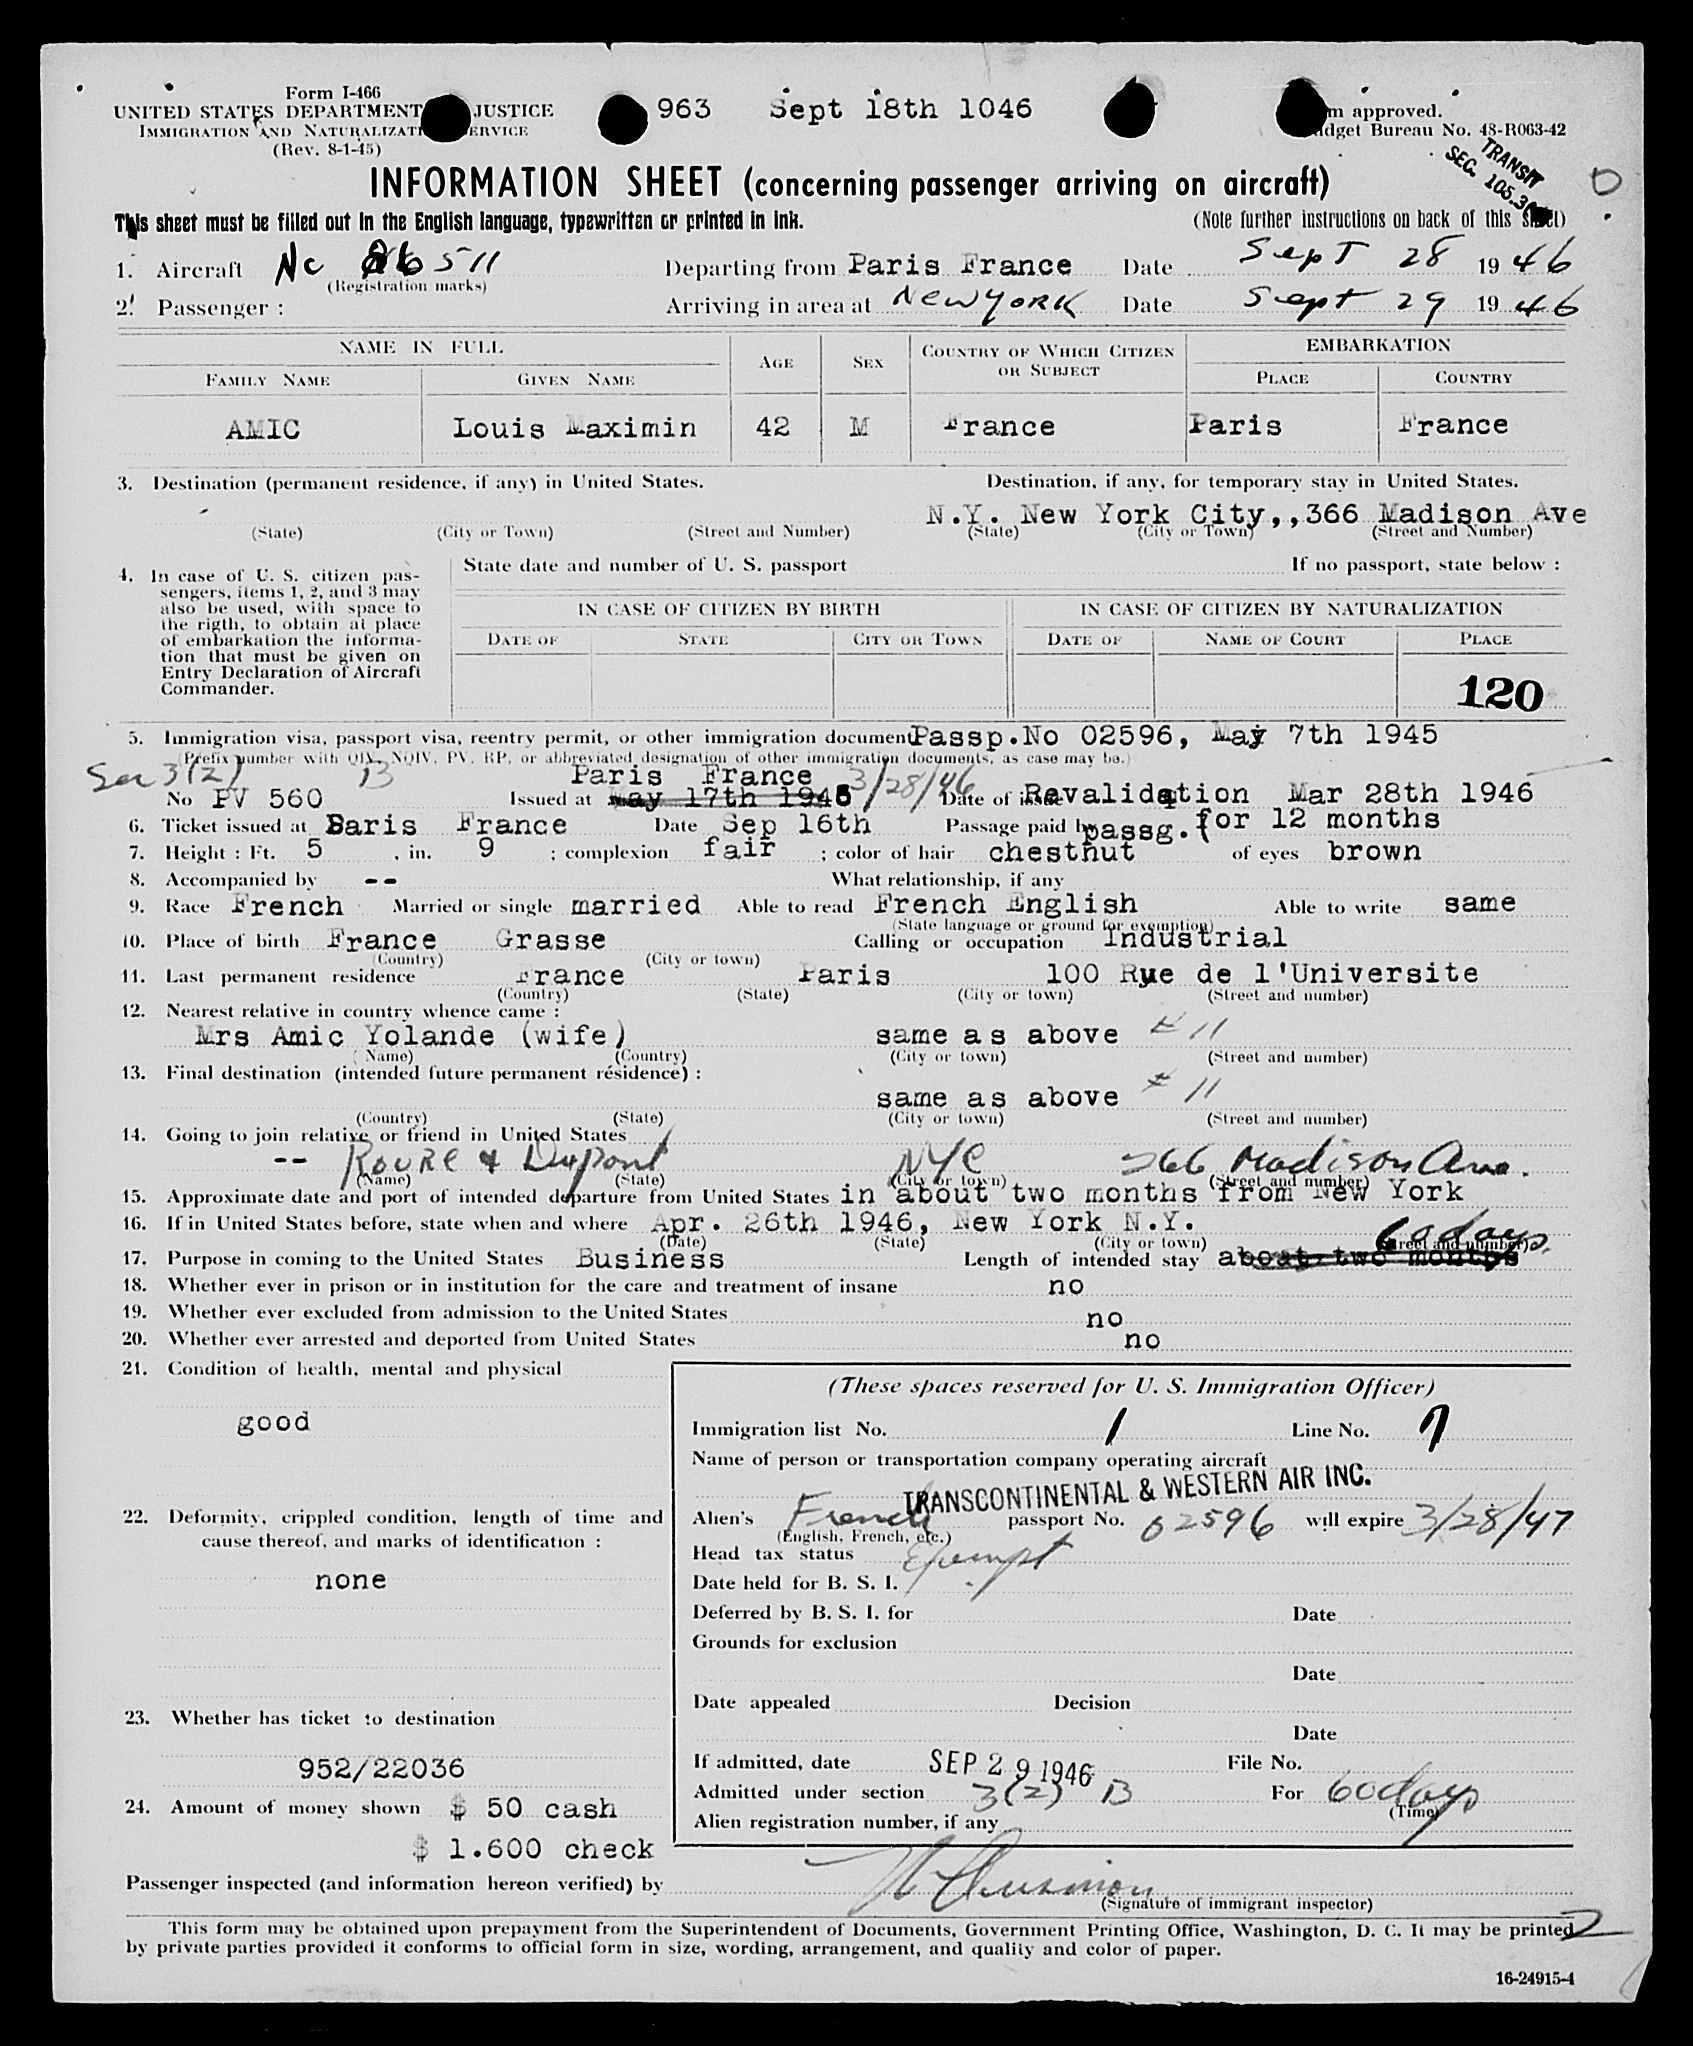 Form I-466
UNITED STATES DEPARTMENT JUSTICE 963 Sept 18th 1046 approved.
IMMIGRATION AND NATURALIZATI ERVICE dget Bureau No. 48-R063-42
(Rev. 8-1-45)
TRANSIT
SEC. 105.3
INFORMATION SHEET (concerning passenger arriving on aircraft)
This sheet must be filled out in the English language, typewritten or printed in ink. (Note further instructions on back of this sheet)
1. Aircraft Nc 86511 Departing from Paris France Date Sept 28 1946
(Registration marks)
2. Passenger : Arriving in area at New York Date Sept 29 1946
NAME IN FULL AGE SEX COUNTRY OF WHICH CITIZEN OR SUBJECT EMBARKATION
FAMILY NAME GIVEN NAME PLACE COUNTRY
AMIC Louis Maximin 42 M France Paris France
3. Destination (permanent residence, if any) in United States. Destination, if any, for temporary stay in United States.
N.Y. New York City,,366 Madison Ave
(State) (City or Town) (Street and Number) (State) (City or Town) (Street and Number)
4. In case of U. S. citizen pas-
sengers, items 1, 2, and 3 may
also be used, with space to
the rigth, to obtain at place
of embarkation the informa-
tion that must be given on
Entry Declaration of Aircraft
Commander.
State date and number of U. S. passport If no passport, state below :
IN CASE OF CITIZEN BY BIRTH IN CASE OF CITIZEN BY NATURALIZATION
DATE OF STATE CITY OR TOWN DATE OF NAME OF COURT PLACE
120
5. Immigration visa, passport visa, reentry permit, or other immigration document Passp.No 02596, May 7th 1945
(Prefix number with QIV, NQIV, PV, RP, or abbreviated designation of other immigration documents, as case may be.)
Sec 3(2) B Paris France 3/28/46
No PV 560 Issued at May 17th 1946 Date of issue Revalidation Mar 28th 1946
6. Ticket issued at Paris France Date Sep 16th Passage paid by passg. (for 12 months
7. Height : Ft. 5 , in. 9 ; complexion fair ; color of hair chestnut of eyes brown
8. Accompanied by -- What relationship, if any
9. Race French Married or single married Able to read French English Able to write same
(State language or ground for exemption)
10. Place of birth France Grasse Calling or occupation Industrial
(Country) (City or town)
11. Last permanent residence France Paris 100 Rue de l'Universite
(Country) (State) (City or town) (Street and number)
12. Nearest relative in country whence came :
Mrs Amic Yolande (wife) same as above # 11
( Name) (Country) (City or town) (Street and number)
13. Final destination (intended future permanent résidence) :
same as above # 11
(Country) (State) (City or town) (Street and number)
14. Going to join relative or friend in United States
-- Roure & Dupont NYC 366 Madison Ave.
(Name) (State) (City or town) (Street and number)
15. Approximate date and port of intended departure from United States in about two months from New York
16. If in United States before, state when and where Apr. 26th 1946, New York N.Y.
(Date) (State) (City or town) (Street and number)
60 days.
17. Purpose in coming to the United States Business Length of intended stay about two months
18. Whether ever in prison or in institution for the care and treatment of insane no
19. Whether ever excluded from admission to the United States no
20. Whether ever arrested and deported from United States no
21. Condition of health, mental and physical
good
22. Deformity, crippled condition, length of time and
cause thereof, and marks of identification :
none
23. Whether has ticket to destination
952/22036
24. Amount of money shown $ 50 cash
$ 1.600 check
(These spaces reserved for U. S. Immigration Officer)
Immigration list No. 1 Line No. 7
Name of person or transportation company operating aircraft
TRANSCONTINENTAL & WESTERN AIR INC.
Alien's French passport No. 02596 will expire 3/28/47
(English, French, etc.)
Head tax status Exempt
Date held for B. S. I.
Deferred by B. S. I. for Date
Grounds for exclusion
Date
Date appealed Decision
Date
If admitted, date SEP 29 1946 File No.
Admitted under section 3(2) B For 60 days
(Time)
Alien registration number, if any
Passenger inspected (and information hereon verified) by
(Signature of immigrant inspector)
This form may be obtained upon prepayment from the Superintendent of Documents, Government Printing Office, Washington, D. C. It may be printed
by private parties provided it conforms to official form in size, wording, arrangement, and quality and color of paper.
2
16-24915-4